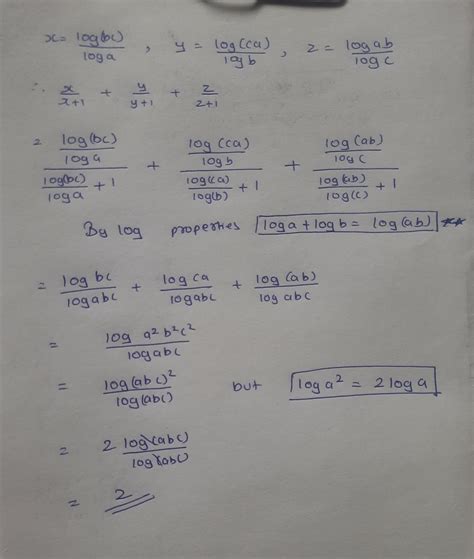 x = log(bc)/log a , y = log(ca)/log b , z = log ab/log c
∴ x/x+1 + y/y+1 + z/z+1
= (log(bc)/log a)/(log(bc)/log a + 1) + (log(ca)/log b)/(log(ca)/log(b) + 1) + (log(ab)/log c)/(log(ab)/log(c) + 1)
By log properties log a + log b = log(ab) **
= log bc/log abc + log ca/log abc + log(ab)/log abc
= log a²b²c²/log abc
= log(abc)²/log(abc) but log a² = 2 log a
= 2 log(abc)/log(abc)
= 2